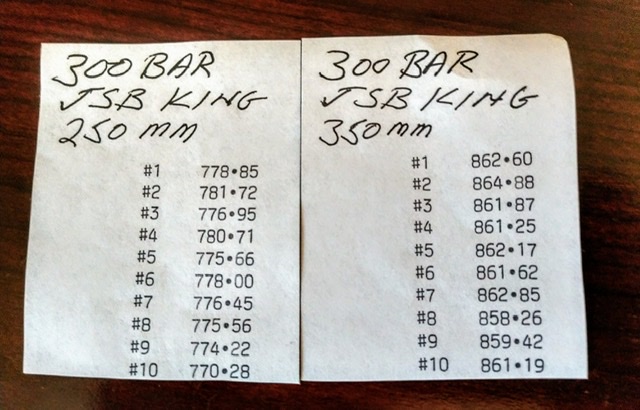 300 BAR
JSB KING
250 mm
#1 778•85
#2 781•72
#3 776•95
#4 780•71
#5 775•66
#6 778•00
#7 776•45
#8 775•56
#9 774•22
#10 770•28
300 BAR
JSB KING
350mm
#1 862•60
#2 864•88
#3 861•87
#4 861•25
#5 862•17
#6 861•62
#7 862•85
#8 858•26
#9 859•42
#10 861•19